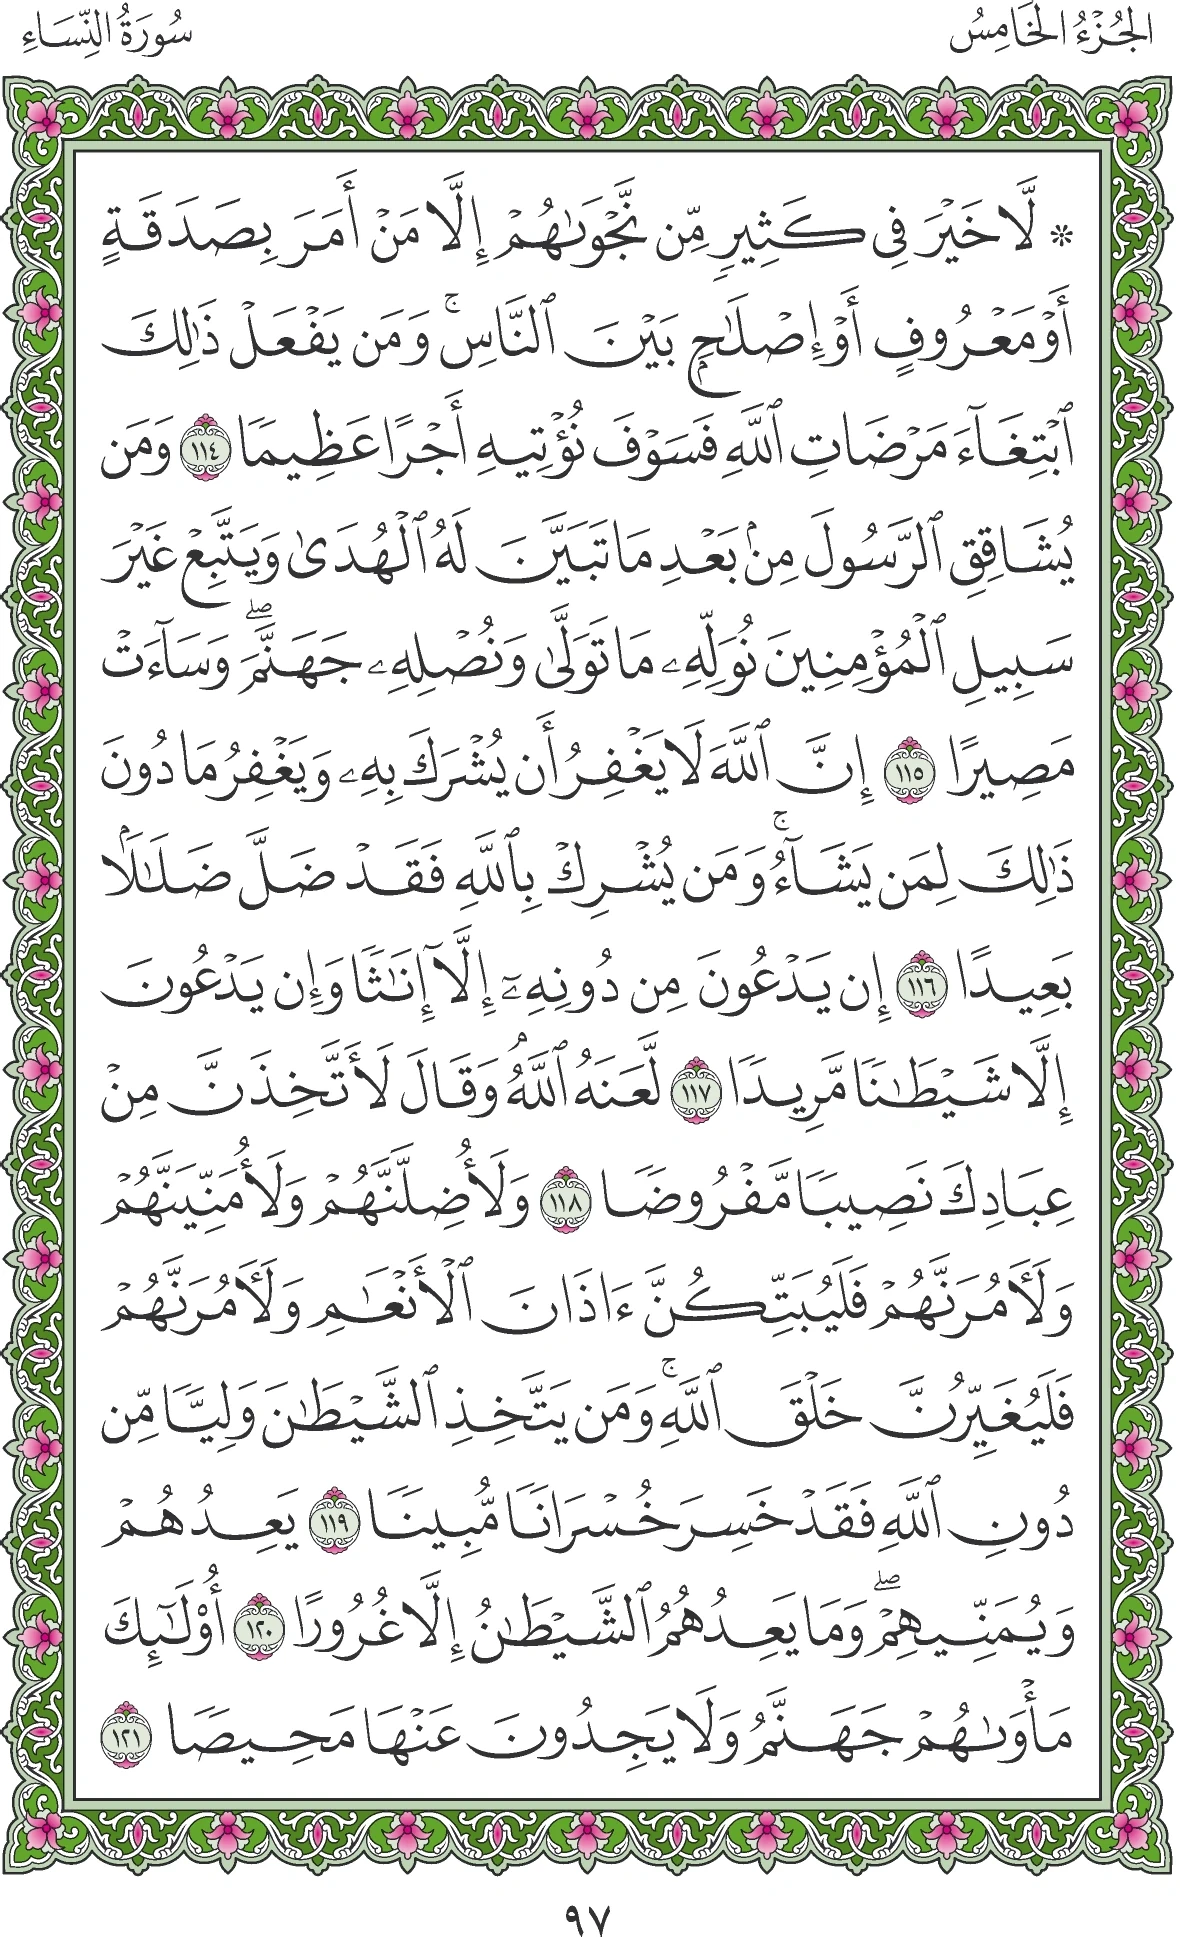 الجُزْءُ الخَامِسُ
سُورَةُ النِّسَاءِ
۞ لَّا خَيْرَ فِى كَثِيرٍ مِّن نَّجْوَىٰهُمْ إِلَّا مَنْ أَمَرَ بِصَدَقَةٍ
أَوْ مَعْرُوفٍ أَوْ إِصْلَٰحٍۭ بَيْنَ ٱلنَّاسِۚ وَمَن يَفْعَلْ ذَٰلِكَ
ٱبْتِغَآءَ مَرْضَاتِ ٱللَّهِ فَسَوْفَ نُؤْتِيهِ أَجْرًا عَظِيمًا ١١٤ وَمَن
يُشَاقِقِ ٱلرَّسُولَ مِنۢ بَعْدِ مَا تَبَيَّنَ لَهُ ٱلْهُدَىٰ وَيَتَّبِعْ غَيْرَ
سَبِيلِ ٱلْمُؤْمِنِينَ نُوَلِّهِۦ مَا تَوَلَّىٰ وَنُصْلِهِۦ جَهَنَّمَۖ وَسَآءَتْ
مَصِيرًا ١١٥ إِنَّ ٱللَّهَ لَا يَغْفِرُ أَن يُشْرَكَ بِهِۦ وَيَغْفِرُ مَا دُونَ
ذَٰلِكَ لِمَن يَشَآءُۚ وَمَن يُشْرِكْ بِٱللَّهِ فَقَدْ ضَلَّ ضَلَٰلًۢا
بَعِيدًا ١١٦ إِن يَدْعُونَ مِن دُونِهِۦٓ إِلَّآ إِنَٰثًا وَإِن يَدْعُونَ
إِلَّا شَيْطَٰنًا مَّرِيدًا ١١٧ لَّعَنَهُ ٱللَّهُۘ وَقَالَ لَأَتَّخِذَنَّ مِنْ
عِبَادِكَ نَصِيبًا مَّفْرُوضًا ١١٨ وَلَأُضِلَّنَّهُمْ وَلَأُمَنِّيَنَّهُمْ
وَلَءَامُرَنَّهُمْ فَلَيُبَتِّكُنَّ ءَاذَانَ ٱلْأَنْعَٰمِ وَلَءَامُرَنَّهُمْ
فَلَيُغَيِّرُنَّ خَلْقَ ٱللَّهِۚ وَمَن يَتَّخِذِ ٱلشَّيْطَٰنَ وَلِيًّا مِّن
دُونِ ٱللَّهِ فَقَدْ خَسِرَ خُسْرَانًا مُّبِينًا ١١٩ يَعِدُهُمْ
وَيُمَنِّيهِمْۖ وَمَا يَعِدُهُمُ ٱلشَّيْطَٰنُ إِلَّا غُرُورًا ١٢٠ أُو۟لَٰٓئِكَ
مَأْوَىٰهُمْ جَهَنَّمُ وَلَا يَجِدُونَ عَنْهَا مَحِيصًا ١٢١
٩٧